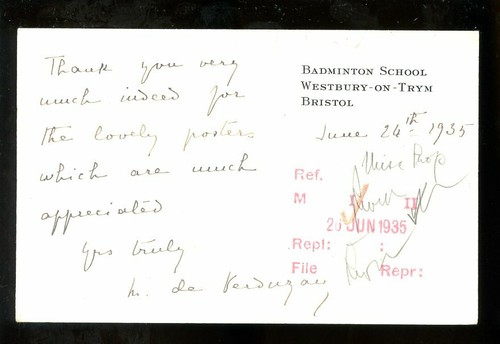 Thank you very
much indeed for
the lovely posters
which are much
appreciated
Yrs truly
M. de Verdugay
BADMINTON SCHOOL
WESTBURY-ON-TRYM
BRISTOL
June 24th 1935
Ref.
M II
26 JUN 1935
Repl: :
File Repr: